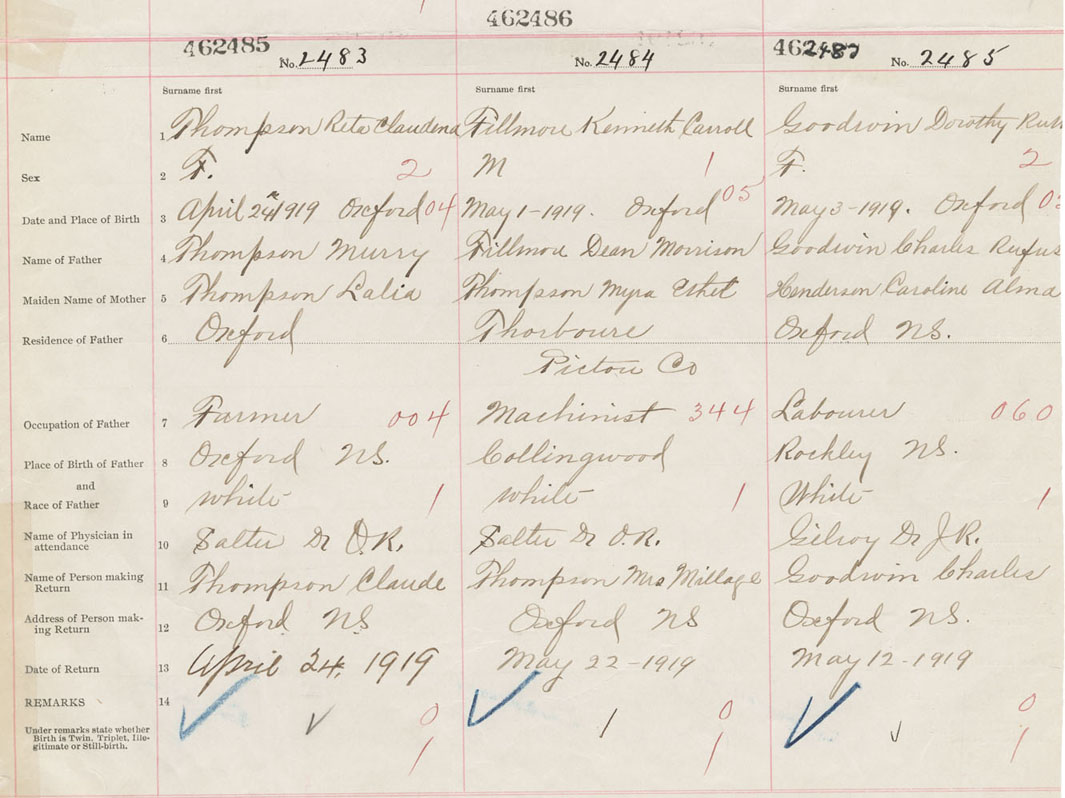 462485 462486 462487
No. 2483 No. 2484 No. 2485
Surname first Surname first Surname first
Name 1 Thompson Reta Claudena Fillmore Kenneth Carroll Goodwin Dorothy Ruth
Sex 2 F. 2 M 1 F. 2
Date and Place of Birth 3 April 24 1919 Oxford 04 May 1-1919. Oxford 05 May 3-1919. Oxford
Name of Father 4 Thompson Murry Fillmore Dean Morrison Goodwin Charles Rufus
Maiden Name of Mother 5 Thompson Lalia Thompson Myra Ethel Henderson Caroline Alma
Residence of Father 6 Oxford Thorboure Oxford NS.
Pictou Co
Occupation of Father 7 Farmer 004 Machinist 344 Labourer 060
Place of Birth of Father 8 Oxford NS. Collingwood Rockley NS.
and
Race of Father 9 white 1 white 1 White 1
Name of Physician in
attendance 10 Salter Dr O.R. Salter Dr O.R. Gilroy Dr J R.
Name of Person making
Return 11 Thompson Claude Thompson Mrs Millage Goodwin Charles
Address of Person mak-
ing Return 12 Oxford NS Oxford NS Oxford NS.
Date of Return 13 April 24, 1919 May 22-1919 May 12-1919
REMARKS 14 0 0 0
Under remarks state whether
Birth is Twin, Triplet, Ille-
gitimate or Still-birth. 1 1 1